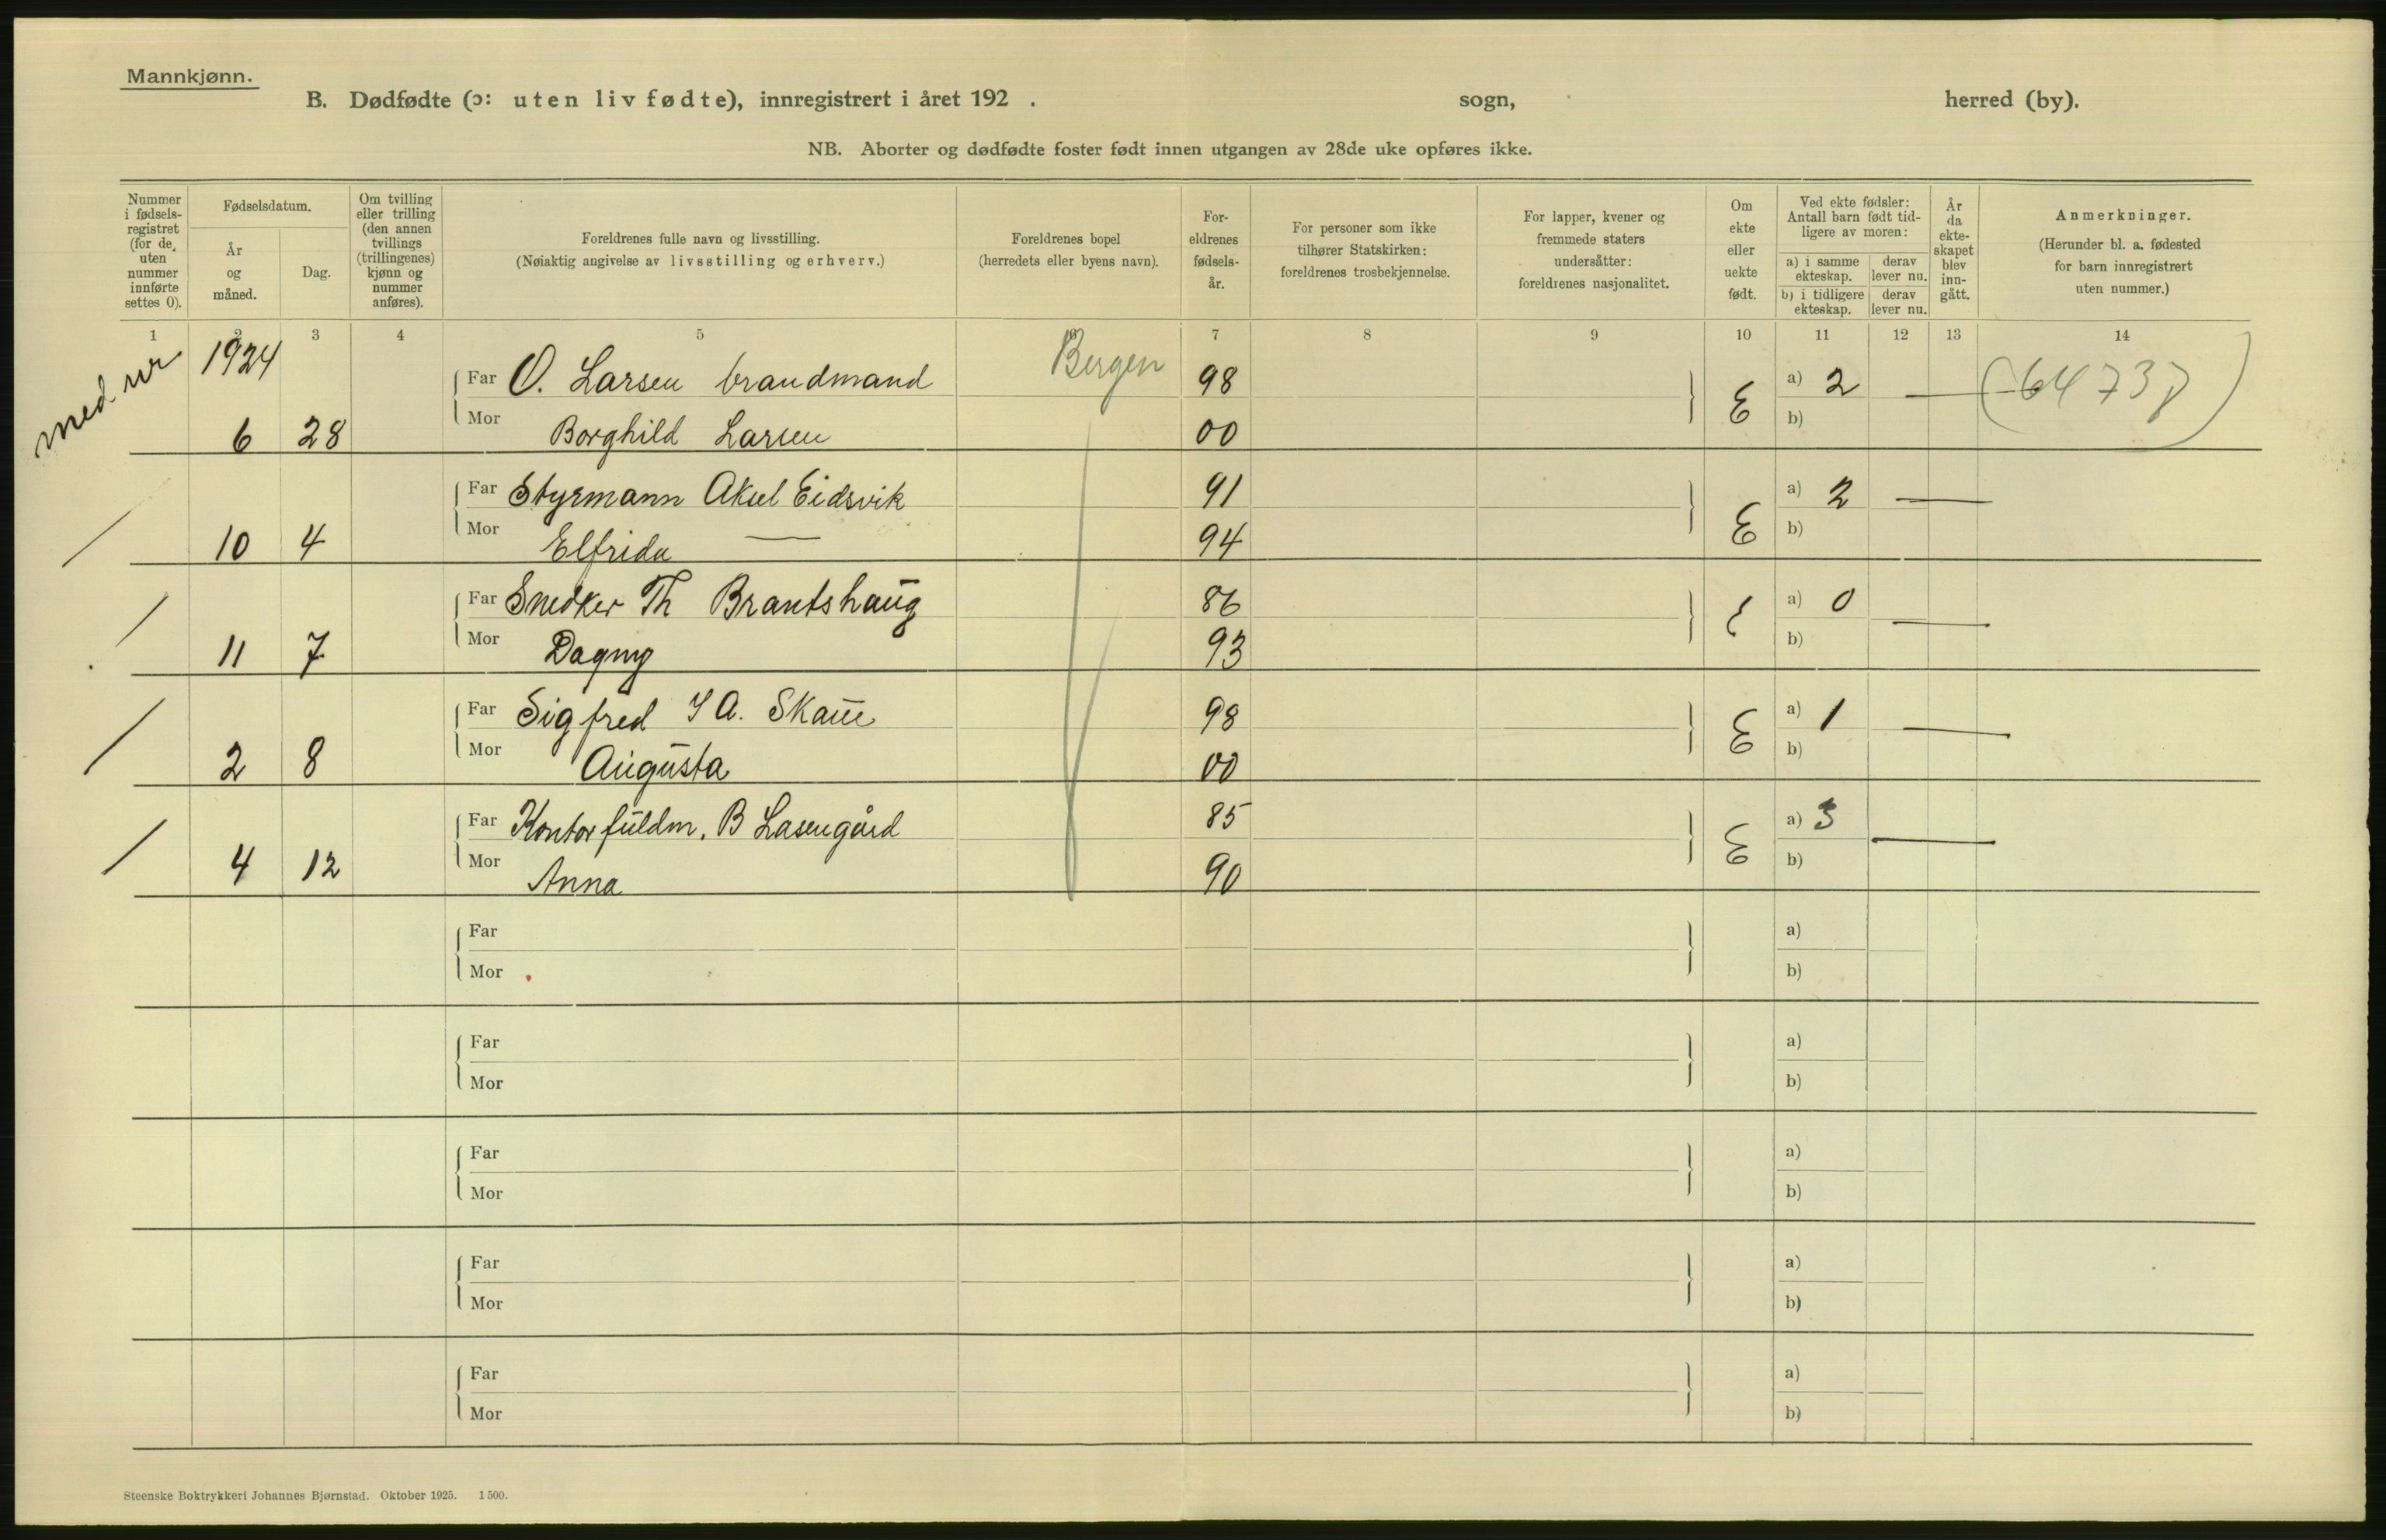 Mannkjønn.
B. Dødfødte (ɔ: uten liv fødte), innregistrert i året 192 . sogn, herred (by).
NB. Aborter og dødfødte foster født innen utgangen av 28de uke opføres ikke.
Nummer i fødselsregistret (for de uten nummer innførte settes 0).
Fødselsdatum.
År og måned.
Dag.
Om tvilling eller trilling (den annen tvillings (trillingenes) kjønn og nummer anføres).
Foreldrenes fulle navn og livsstilling.
(Nøiaktig angivelse av livsstilling og erhverv.)
Foreldrenes bopel
(herredets eller byens navn).
Foreldrenes fødselsår.
For personer som ikke tilhører Statskirken: foreldrenes trosbekjennelse.
For lapper, kvener og fremmede staters undersåtter: foreldrenes nasjonalitet.
Om ekte eller uekte født.
Ved ekte fødsler: Antall barn født tidligere av moren:
a) i samme ekteskap. derav lever nu.
b) i tidligere ekteskap. derav lever nu.
År da ekteskapet blev inngått.
Anmerkninger.
(Herunder bl. a. fødested for barn innregistrert uten nummer.)
1 2 3 4 5 6 7 8 9 10 11 12 13 14
med nr 1924
Far O. Larsen brandmand Bergen 98 a) 2 — (64737)
6 28 Mor Borghild Larsen 00 E b)
Far Styrmann Aksel Eidsvik 91 a) 2 —
/ 10 4 Mor Elfrida — 94 E b)
Far Snedker Th Brantshaug 86 a) 0 —
/ 11 7 Mor Dagny 93 E b)
Far Sigfred A. Skaue 98 a) 1 —
/ 2 8 Mor Augusta 00 E b)
Far Kontorfuldm. B Lasengård 85 a) 3 —
/ 4 12 Mor Anna 90 E b)
Far a)
Mor b)
Far a)
Mor b)
Far a)
Mor b)
Far a)
Mor b)
Far a)
Mor b)
Steenske Boktrykkeri Johannes Bjørnstad. Oktober 1925. 1500.